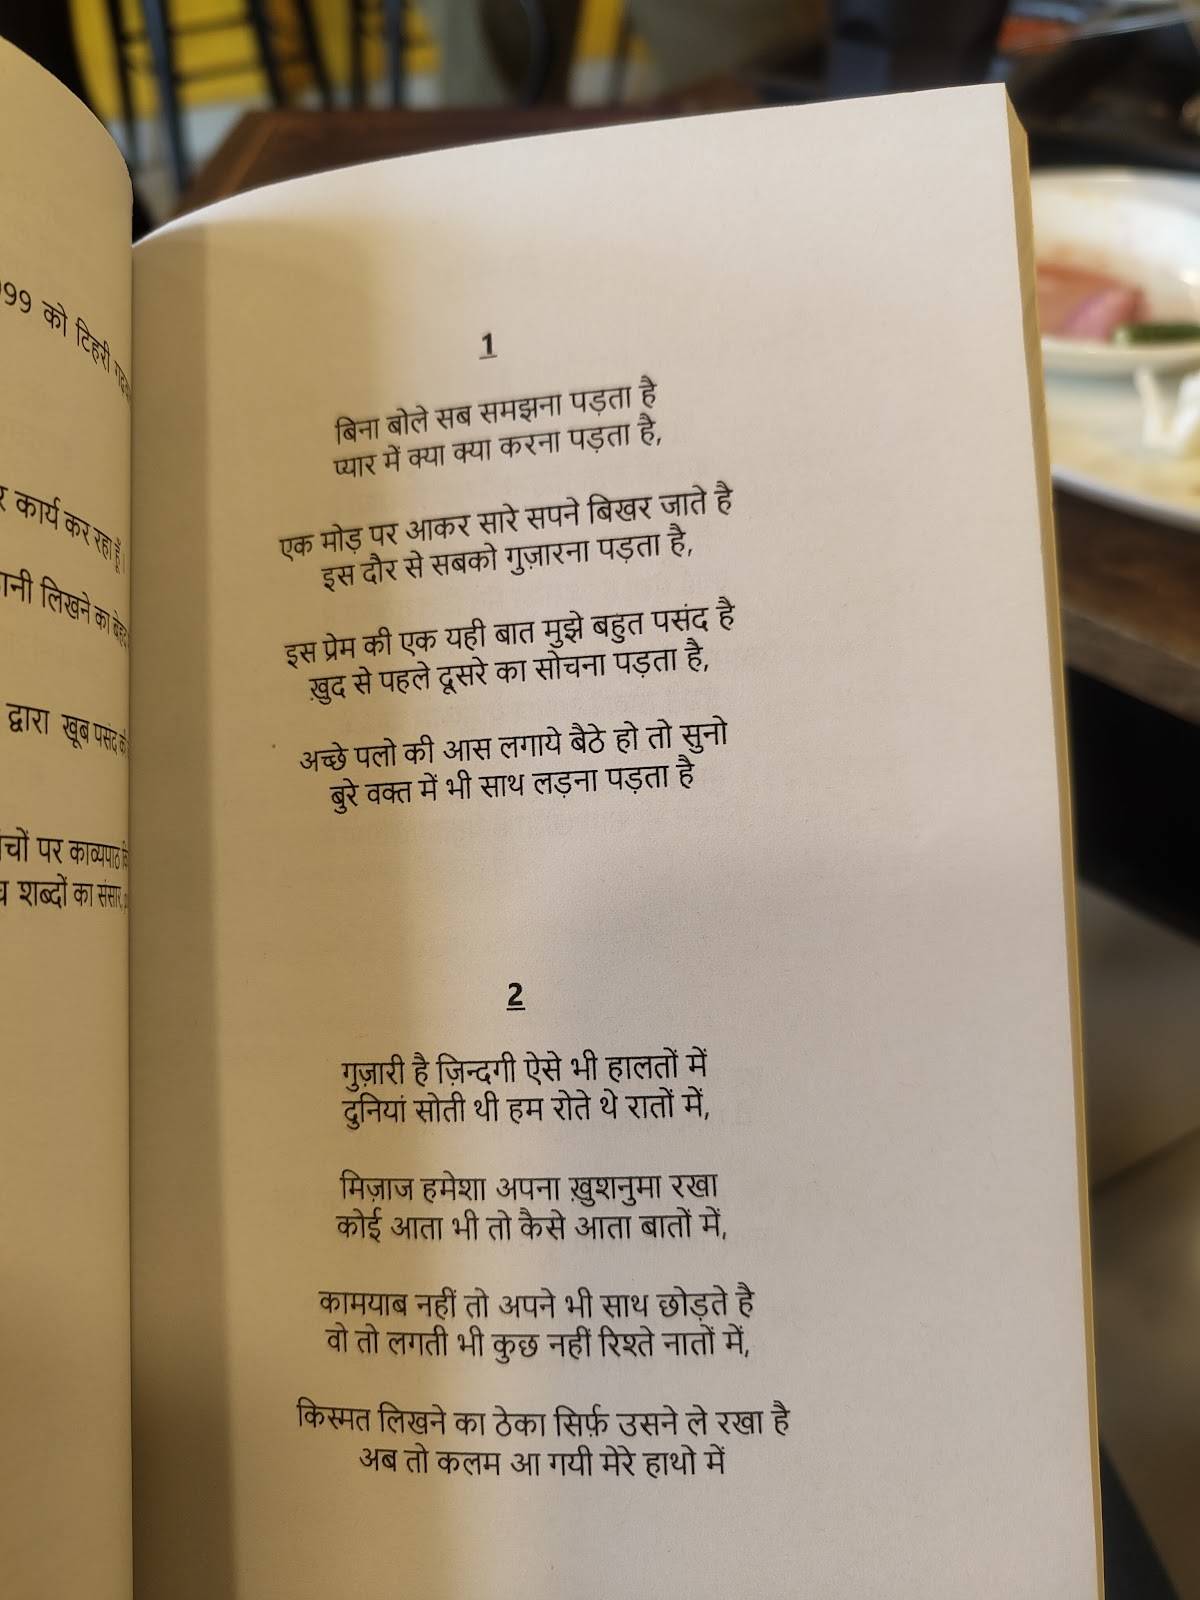 99 को टिहरी
कार्य कर रहा हूँ।
लिखने का बेहद
द्वारा खूब पसंद
पर काव्यपाठ
शब्दों का संसार,
1
बिना बोले सब समझना पड़ता है
प्यार में क्या क्या करना पड़ता है,
एक मोड़ पर आकर सारे सपने बिखर जाते है
इस दौर से सबको गुज़ारना पड़ता है,
इस प्रेम की एक यही बात मुझे बहुत पसंद है
ख़ुद से पहले दूसरे का सोचना पड़ता है,
अच्छे पलो की आस लगाये बैठे हो तो सुनो
बुरे वक्त में भी साथ लड़ना पड़ता है
2
गुज़ारी है ज़िन्दगी ऐसे भी हालतों में
दुनियां सोती थी हम रोते थे रातों में,
मिज़ाज हमेशा अपना ख़ुशनुमा रखा
कोई आता भी तो कैसे आता बातों में,
कामयाब नहीं तो अपने भी साथ छोड़ते है
वो तो लगती भी कुछ नहीं रिश्ते नातों में,
किस्मत लिखने का ठेका सिर्फ़ उसने ले रखा है
अब तो कलम आ गयी मेरे हाथो में